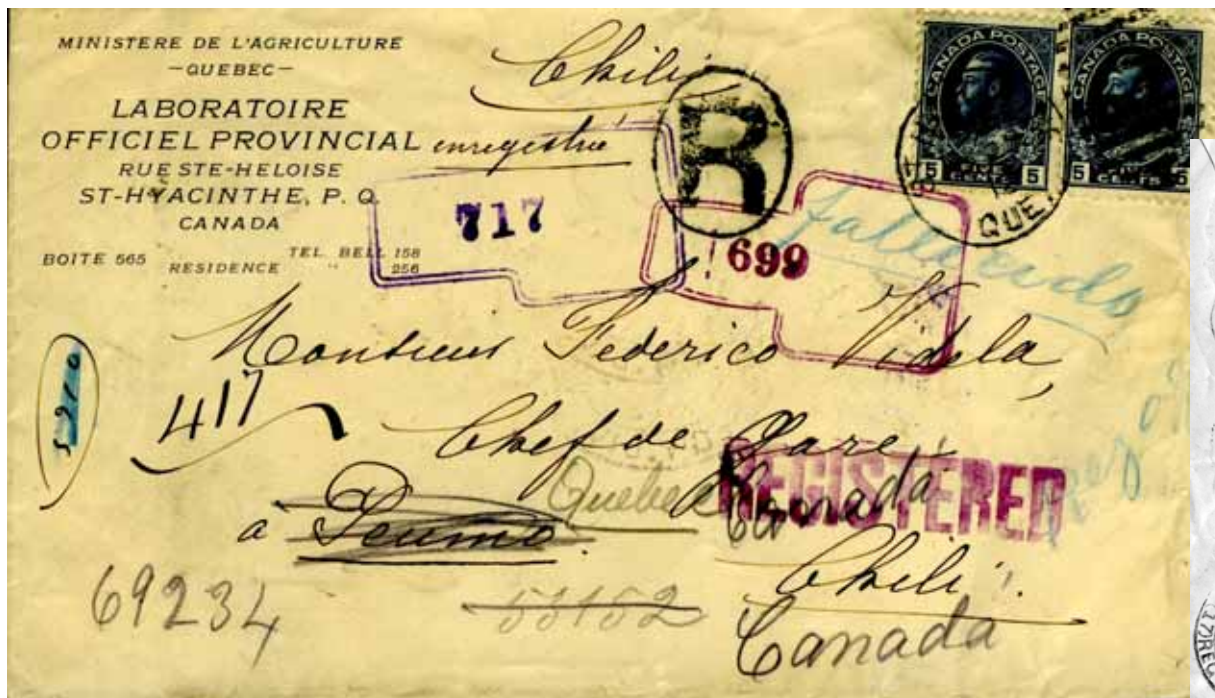 MINISTERE DE L'AGRICULTURE
-QUEBEC-
LABORATOIRE
OFFICIEL PROVINCIAL
RUE STE-HELOISE
ST-HYACINTHE, P. Q.
CANADA
BOITE 565 TEL. BELL 158
RESIDENCE " 256
Chili
enregistré
R
CANADA POSTAGE
5 CENTS 5
CANADA POSTAGE
5 CENTS 5
QUE.
717
699
fallecido
Monsieur Federico Videla,
417
Chef de Gare,
Quebec Canada
REGISTERED
a Peumo.
Chili.
69234
53152
Canada